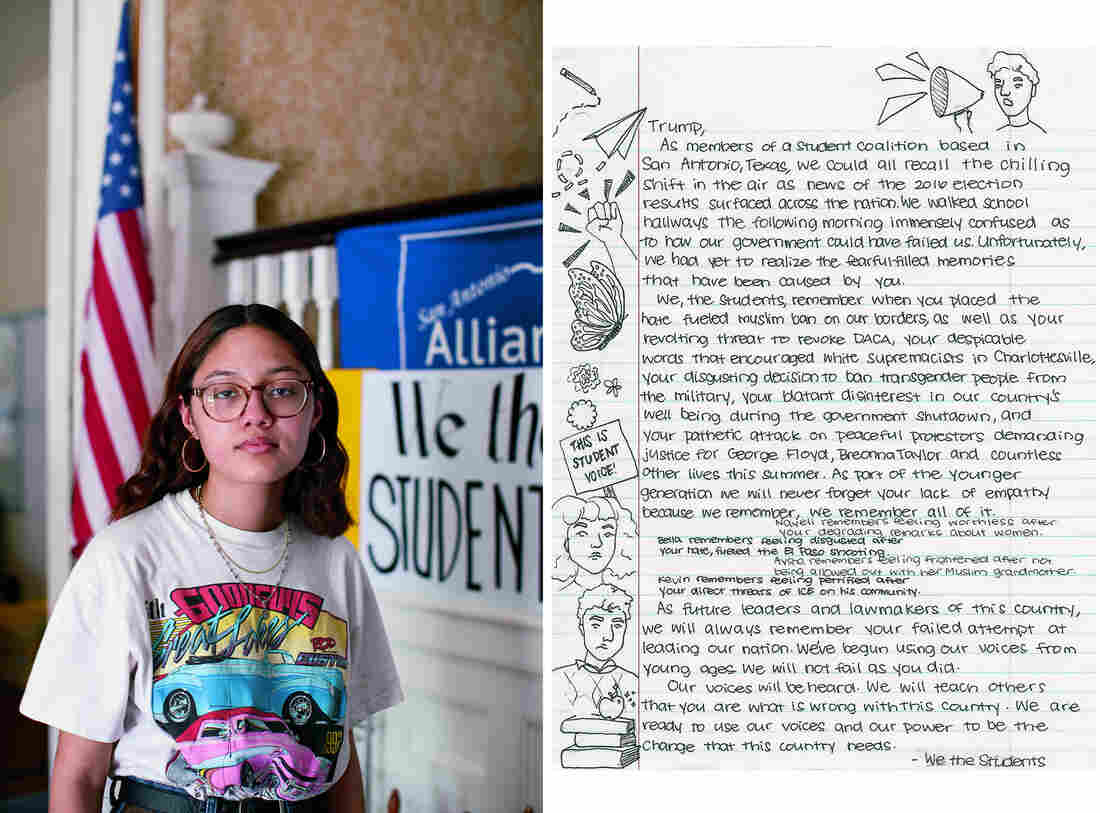 San Antonio
Allian
We the
STUDENT
GOODGUYS
Great
1992
Trump,
As members of a student coalition based in
San Antonio, Texas, we could all recall the chilling
shift in the air as news of the 2016 election
results surfaced across the nation. We walked school
hallways the following morning immensely confused as
to how our government could have failed us. Unfortunately,
we had yet to realize the fearful-filled memories
that have been caused by you.
We, the Students, remember when you placed the
hate fueled muslim ban on our borders, as well as your
revolting threat to revoke DACA, your despicable
words that encouraged white supremacists in Charlottesville,
your disgusting decision to ban transgender people from
the military, your blatant disinterest in our country's
well being during the government shutdown, and
your pathetic attack on peaceful protestors demanding
justice for George Floyd, Breonna Taylor and countless
other lives this summer. As part of the younger
generation we will never forget your lack of empathy
because we remember, we remember all of it.
Nowell remembers feeling worthless after
your degrading remarks about women.
Bella remembers feeling disgusted after
your hate, fueled the El Paso shooting.
Aysha remembers feeling frightened after not
being allowed out with her Muslim grandmother.
Kevin remembers feeling petrified after
your direct threats of ICE on his community.
As future leaders and lawmakers of this country,
we will always remember your failed attempt at
leading our nation. We've begun using our voices from
young ages. We will not fail as you did.
Our voices will be heard. We will teach others
that you are what is wrong with this country. We are
ready to use our voices and our power to be the
change that this country needs.
- We the Students
THIS IS
STUDENT
VOICE!